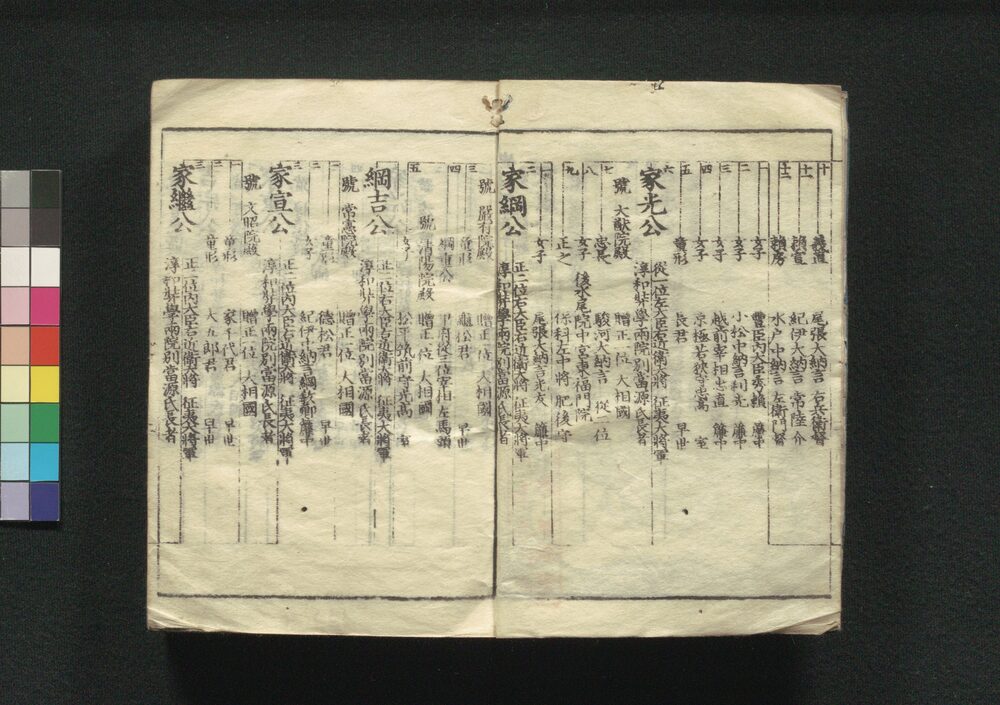 十 義直 尾張大納言 右兵衛督
十一 頼宣 紀伊大納言 常陸介
十二 頼房 水戸中納言 左衛門督
一 女子 豊臣内大臣秀頼 簾中
二 女子 小松中納言利光 簾中
三 女子 越前宰相忠直 簾中
四 女子 京極若狭守忠高 室
五 童形 長君 早世
六
家光公 從一位左大臣右近衛大将 征夷大将軍
淳和奨學両院別當源氏長者
號 大猷院殿 贈正一位 大相國
七 忠長 駿河大納言 從一位
八 女子 後水尾院中宮東福門院
九 正之 保科左中将 肥後守
一 女子 尾張大納言光友 簾中
二
家綱公 正二位右大臣右近衛大将 征夷大将軍
淳和奨學両院別當源氏長者
號 嚴有院殿 贈正一位 大相國
三 童形 亀松君 早世
四 綱重公 甲府從三位宰相左馬頭
號 清陽院殿 贈正一位 大相國
女子 松平筑前守光高 室
五
綱吉公 正二位右大臣右近衛大将 征夷大将軍
淳和奨學両院別當源氏長者
號 常憲院殿 贈正一位 大相國
一 童形 德松君 早世
二 女子 紀伊中納言綱教卿 簾中
三
家宣公 正二位内大臣右近衛大将 征夷大将軍
淳和奨學両院別當源氏長者
號 文昭院殿 贈正一位 大相國
一 童形 家千代君 早世
二 童形 大五郎君 早世
三
家繼公 正二位内大臣右近衛大将 征夷大将軍
淳和奨學両院別當源氏長者